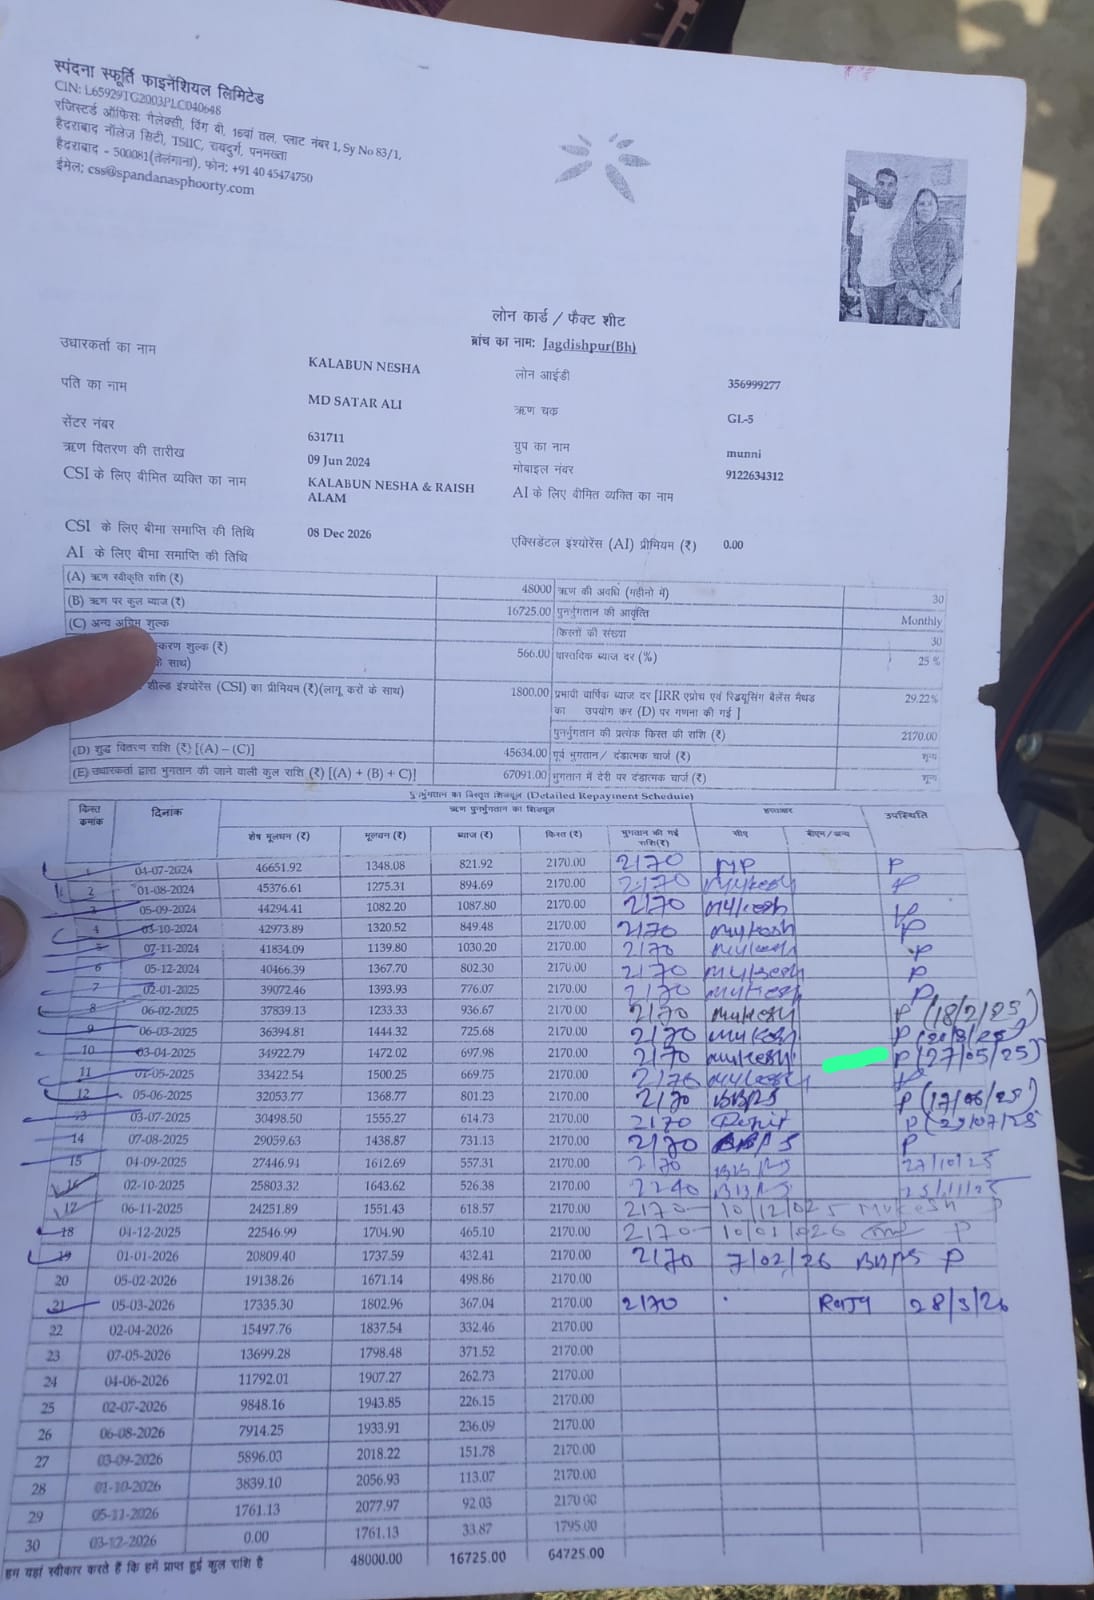 स्पंदना स्फूर्ति फाइनेंशियल लिमिटेड
CIN: L65929TG2003PLC040648
रजिस्टर्ड ऑफिस: गैलेक्सी, विंग बी, 16वां तल, प्लाट नंबर 1, Sy No 83/1,
हैदराबाद नॉलेज सिटी, TSIIC, रायदुर्ग, पनमख्ता
हैदराबाद - 500081(तेलंगाना). फोन: +91 40 45474750
ईमेल: css@spandanasphoorty.com
लोन कार्ड / फैक्ट शीट
ब्रांच का नाम: Jagdishpur(Bh)
उधारकर्ता का नाम KALABUN NESHA लोन आईडी 356999277
पति का नाम MD SATAR ALI ऋण चक्र GL-5
सेंटर नंबर 631711 ग्रुप का नाम munni
ऋण वितरण की तारीख 09 Jun 2024 मोबाइल नंबर 9122634312
CSI के लिए बीमित व्यक्ति का नाम KALABUN NESHA & RAISH ALAM AI के लिए बीमित व्यक्ति का नाम
CSI के लिए बीमा समाप्ति की तिथि 08 Dec 2026 एक्सिडेंटल इंश्योरेंस (AI) प्रीमियम (₹) 0.00
AI के लिए बीमा समाप्ति की तिथि
(A) ऋण स्वीकृति राशि (₹) 48000 ऋण की अवधि (महीनो में) 30
(B) ऋण पर कुल ब्याज (₹) 16725.00 पुनर्भुगतान की आवृत्ति Monthly
(C) अन्य अग्रिम शुल्क किस्तों की संख्या 30
करण शुल्क (₹) के साथ) 566.00 वास्तविक ब्याज दर (%) 25 %
शील्ड इंश्योरेंस (CSI) का प्रीमियम (₹)(लागू करों के साथ) 1800.00 प्रभावी वार्षिक ब्याज दर [IRR एप्रोच एवं रिड्यूसिंग बैलेंस मैथड का उपयोग कर (D) पर गणना की गई ] 29.22%
पुनर्भुगतान की प्रत्येक किस्त की राशि (₹) 2170.00
(D) शुद्ध वितरण राशि (₹) [(A) – (C)] 45634.00 पूर्व भुगतान/ दंडात्मक चार्ज (₹) शून्य
(E) उधारकर्ता द्वारा भुगतान की जाने वाली कुल राशि (₹) [(A) + (B) + C)] 67091.00 भुगतान में देरी पर दंडात्मक चार्ज (₹) शून्य
पुनर्भुगतान का विस्तृत शिड्यूल (Detailed Repayment Schedule)
किस्त क्रमांक दिनांक ऋण पुनर्भुगतान का शिड्यूल हस्ताक्षर उपस्थिति
शेष मूलधन (₹) मूलधन (₹) ब्याज (₹) किस्त (₹) भुगतान की गई राशि(₹) सीए बीएम/अन्य
1 04-07-2024 46651.92 1348.08 821.92 2170.00 2170 MP P
2 01-08-2024 45376.61 1275.31 894.69 2170.00 2170 Mukesh P
3 05-09-2024 44294.41 1082.20 1087.80 2170.00 2170 Mukesh P
4 03-10-2024 42973.89 1320.52 849.48 2170.00 2170 Mukesh P
5 07-11-2024 41834.09 1139.80 1030.20 2170.00 2170 Mukesh P
6 05-12-2024 40466.39 1367.70 802.30 2170.00 2170 Mukesh P
7 02-01-2025 39072.46 1393.93 776.07 2170.00 2170 Mukesh P
8 06-02-2025 37839.13 1233.33 936.67 2170.00 2170 Mukesh P (18/2/25)
9 06-03-2025 36394.81 1444.32 725.68 2170.00 2170 Mukesh P
10 03-04-2025 34922.79 1472.02 697.98 2170.00 2170 Mukesh P (27/05/25)
11 01-05-2025 33422.54 1500.25 669.75 2170.00 2170 Mukesh P
12 05-06-2025 32053.77 1368.77 801.23 2170.00 2170 BBPS P (17/06/25)
13 03-07-2025 30498.50 1555.27 614.73 2170.00 2170 P (29/07/25
14 07-08-2025 29059.63 1438.87 731.13 2170.00 2170 BBPS P
15 04-09-2025 27446.94 1612.69 557.31 2170.00 2170 BBPS 27/10/25
16 02-10-2025 25803.32 1643.62 526.38 2170.00 2240 BBPS 25/11/25
17 06-11-2025 24251.89 1551.43 618.57 2170.00 2170 10/12/025 Mukesh P
18 04-12-2025 22546.99 1704.90 465.10 2170.00 2170 10/01/026 P
19 01-01-2026 20809.40 1737.59 432.41 2170.00 2170 7/02/26 BBPS P
20 05-02-2026 19138.26 1671.14 498.86 2170.00
21 05-03-2026 17335.30 1802.96 367.04 2170.00 2170 Raju 28/3/26
22 02-04-2026 15497.76 1837.54 332.46 2170.00
23 07-05-2026 13699.28 1798.48 371.52 2170.00
24 04-06-2026 11792.01 1907.27 262.73 2170.00
25 02-07-2026 9848.16 1943.85 226.15 2170.00
26 06-08-2026 7914.25 1933.91 236.09 2170.00
27 03-09-2026 5896.03 2018.22 151.78 2170.00
28 01-10-2026 3839.10 2056.93 113.07 2170.00
29 05-11-2026 1761.13 2077.97 92.03 2170.00
30 03-12-2026 0.00 1761.13 33.87 1795.00
हम यहां स्वीकार करते हैं कि हमें प्राप्त हुई कुल राशि है 48000.00 16725.00 64725.00